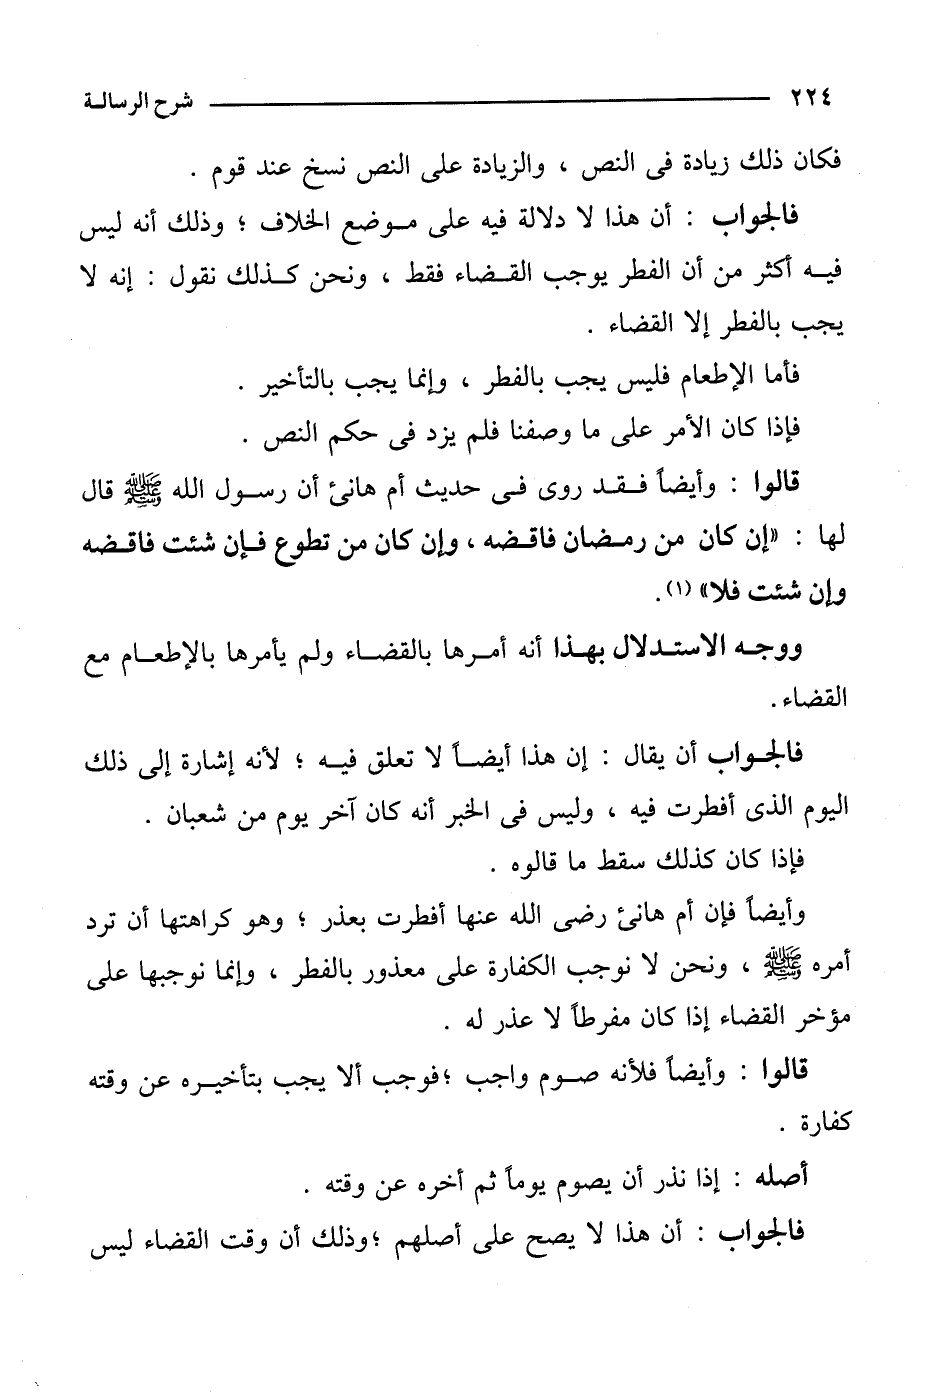 ٢٢٤ شرح الرسالة
فكان ذلك زيادة فى النص ، والزيادة على النص نسخ عند قوم .
فالجواب : أن هذا لا دلالة فيه على موضع الخلاف ؛ وذلك أنه ليس
فيه أكثر من أن الفطر يوجب القضاء فقط ، ونحن كذلك نقول : إنه لا
يجب بالفطر إلا القضاء .
فأما الإطعام فليس يجب بالفطر ، وإنما يجب بالتأخير .
فإذا كان الأمر على ما وصفنا فلم يزد فى حكم النص .
قالوا : وأيضاً فقد روى فى حديث أم هانئ أن رسول الله ﷺ قال
لها : «إن كان من رمضان فاقضه ، وإن كان من تطوع فإن شئت فاقضه
وإن شئت فلا» (١).
ووجه الاستدلال بهذا أنه أمرها بالقضاء ولم يأمرها بالإطعام مع
القضاء.
فالجواب أن يقال : إن هذا أيضاً لا تعلق فيه ؛ لأنه إشارة إلى ذلك
اليوم الذى أفطرت فيه ، وليس فى الخبر أنه كان آخر يوم من شعبان .
فإذا كان كذلك سقط ما قالوه .
وأيضاً فإن أم هانئ رضى الله عنها أفطرت بعذر ؛ وهو كراهتها أن ترد
أمره ﷺ ، ونحن لا نوجب الكفارة على معذور بالفطر ، وإنما نوجبها على
مؤخر القضاء إذا كان مفرطاً لا عذر له .
قالوا : وأيضاً فلأنه صوم واجب ؛فوجب ألا يجب بتأخيره عن وقته
كفارة .
أصله : إذا نذر أن يصوم يوماً ثم أخره عن وقته .
فالجواب : أن هذا لا يصح على أصلهم ؛وذلك أن وقت القضاء ليس